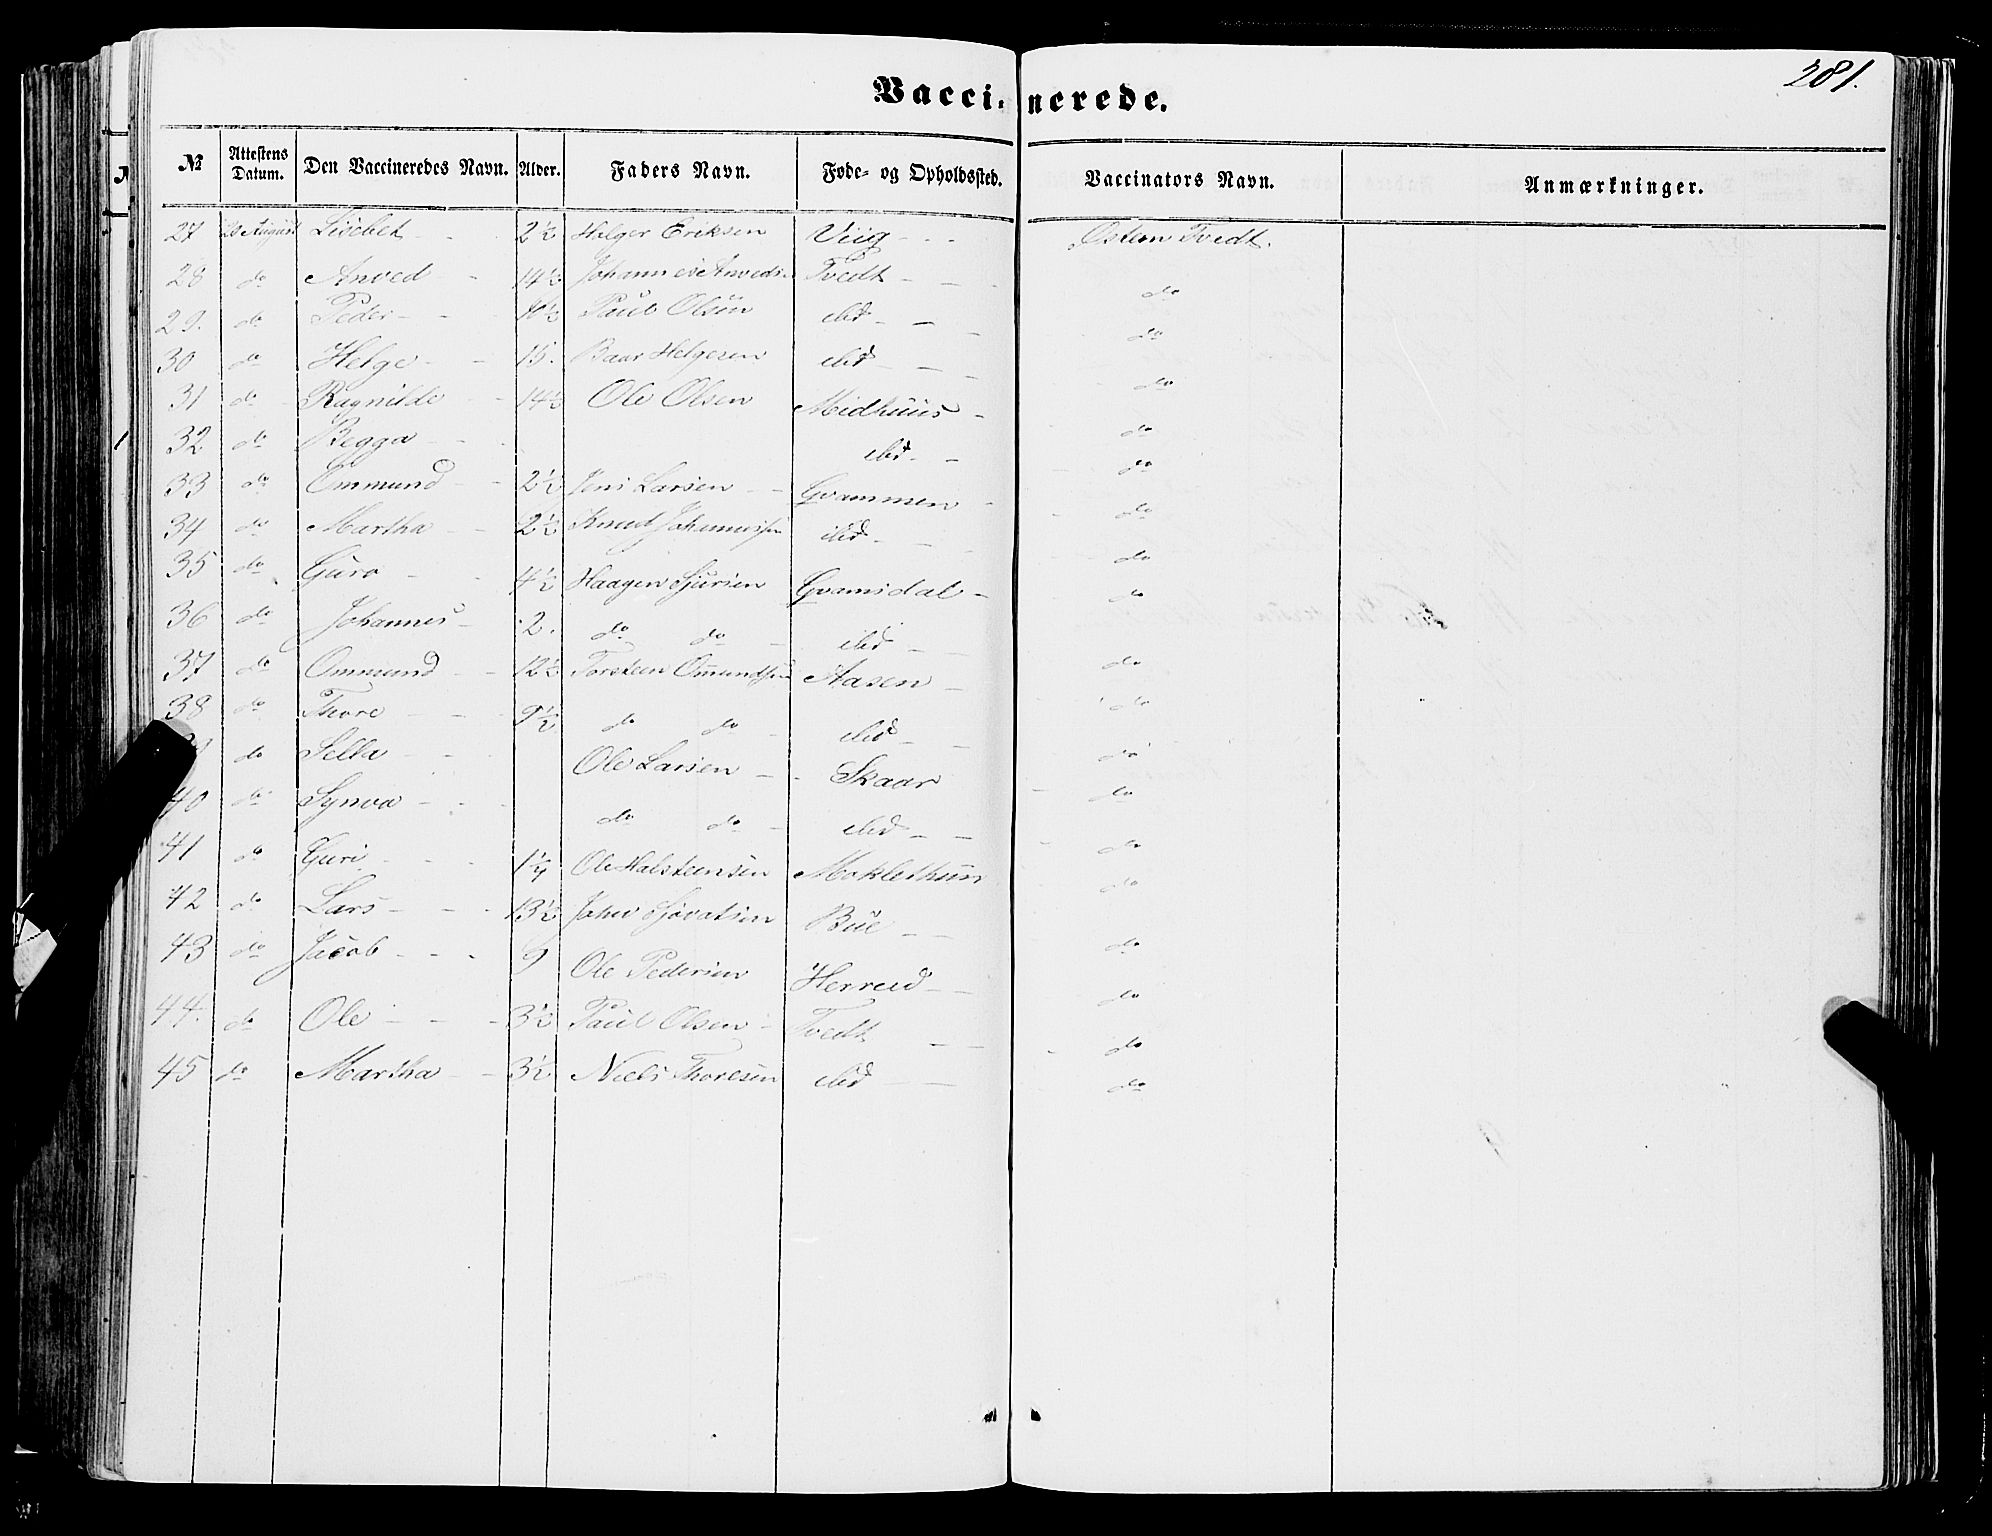 281.
Vaccinerede.
№ Attestens Datum. Den Vaccineredes Navn. Alder. Faders Navn. Føde- og Opholdssted. Vaccinators Navn. Anmærkninger.
27 20 August Lisebet - - 2½ Helger Eriksen Viig - - Østen Tvedt.
28 do Anved - 14½ Johannes Anveds Tvedt - - do
29. do Peder - - 10½ Paul Olsen ibid - - - do
30 do Helge - - 15. Baar Helgesen ibid - - - do
31 do Ragnilde - 14½ Ole Olsen Midhuus - do
32 do Begga - - ibid - - do
33 do Ommund - - 2½ Jens Larsen - - Qvammen - do
34 do Martha - 2½ Knud Johannessen ibid - - - do
35 do Guro - - 4½ Haagen Sjursen Qvamsdal - do
36 do Johannes - 2. do do - ibid - - do
37 do Ommund - - 12½ Torsteen Omundsen Aasen - do
38 do Thore - - 9½ do do - ibid - - do
do Sella - - Ole Larsen - - Skaar do
40 do Synva - - do do - ibid - - do
41 do Guri - - - 1¼ Ole Halsteensen Moklethun do
42 do Lars - - - 13½ John Sjovatsen Büe - - do
43 do Jacob - - - 9 Ole Pedersen Herreid - - do
44. do Ole - - - 3½ Paul Olsen - Tvedt - - do
45 do Martha - - 3½ Niels Thoresen ibid - - do